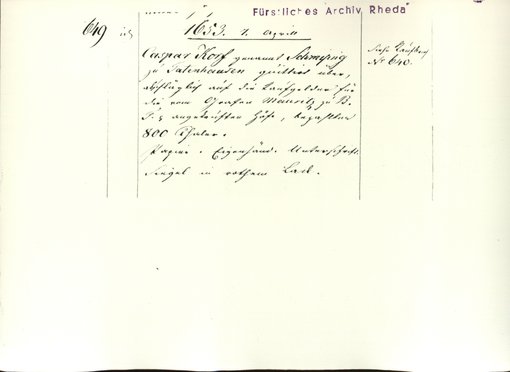 Fürstliches Archiv Rheda
649
1653. 7. April
Caspar Korf genannt Schmising
zu Tatenhausen quittirt über,
abschläglich auf die Kaufgelder für
die vom Grafen Mauritz zu B.
T. angekauften Höfe, bezahlte
800 Thaler.
Papier. Eigenhänd. Unterschrift.
Siegel in rothem Lack.
Siehe Kaufbrief
No 640.